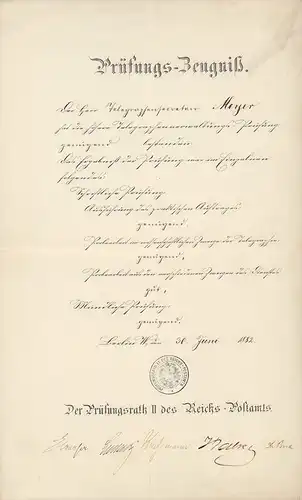 Prüfungs-Zeugniß.
Der Herr Telegraphensecretair Meyer
hat die höhere Telegraphenverwaltungs-Prüfung
genügend bestanden.
Das Ergebniß der Prüfung war im Einzelnen
folgendes:
Schriftliche Prüfung:
Ausführung des praktischen Auftrages
genügend,
Probearbeit aus wissenschaftlichen Zweige der Telegraphie
genügend,
Probearbeit aus den verschiedenen Zweigen des Dienstes
gut,
Mündliche Prüfung:
genügend.
Berlin W., 30. Juni 1882.
Der Prüfungsrath II des Reichs-Postamts.